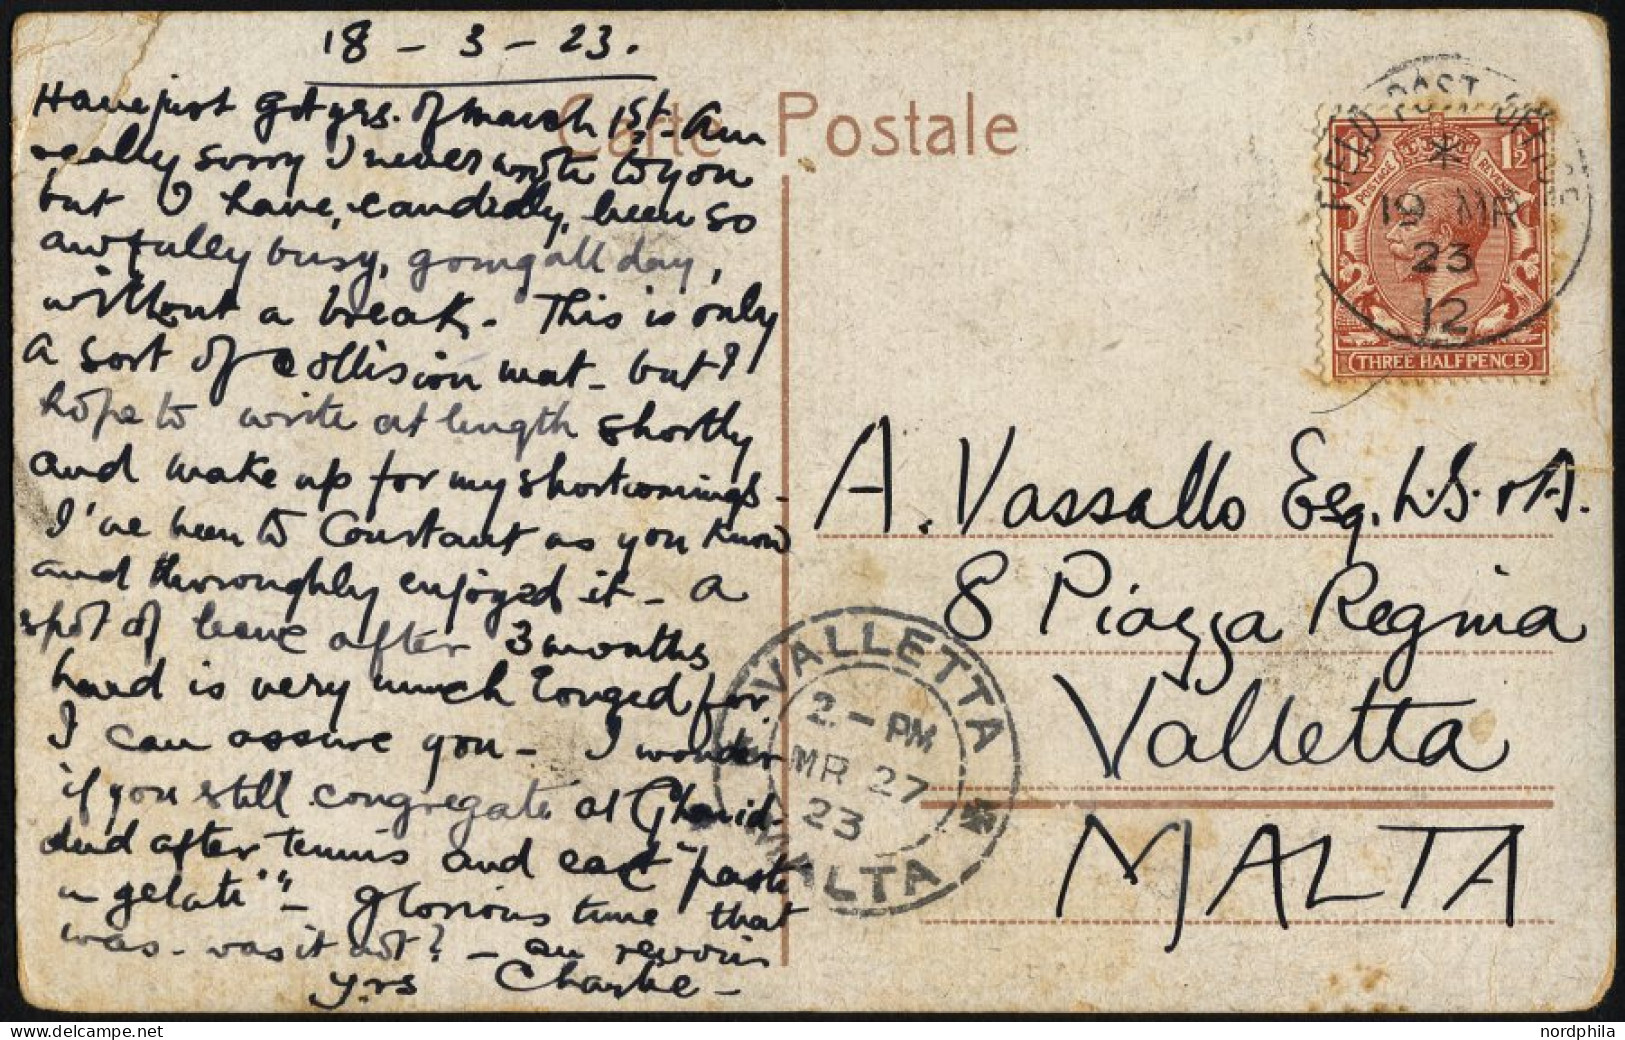 18 - 3 - 23.
Have just got yrs. of March 1st - Am
really sorry I never wrote to you
but I have, candidly, been so
awfully busy, going all day,
without a break. This is only
a sort of collision mat - but I
hope to write at length shortly
and make up for my shortcomings -
I've been to Constant as you know
and thoroughly enjoyed it - a
spot of leave after 3 months
hard is very much longed for
I can assure you - I wonder
if you still congregate at Ghavid-
and after tennis and eat "paste
gelati" - glorious time that
was - was it not? - au revoir
yrs Charlie -
Carte Postale
FIELD POST OFFICE
19 MR
23
12
POSTAGE REVENUE
1½
THREE HALFPENCE
A. Vassallo Esq. L.S. & A.
8 Piazza Regina
Valletta
MALTA
VALLETTA
2 - PM
MR 27
23
MALTA
nordphila